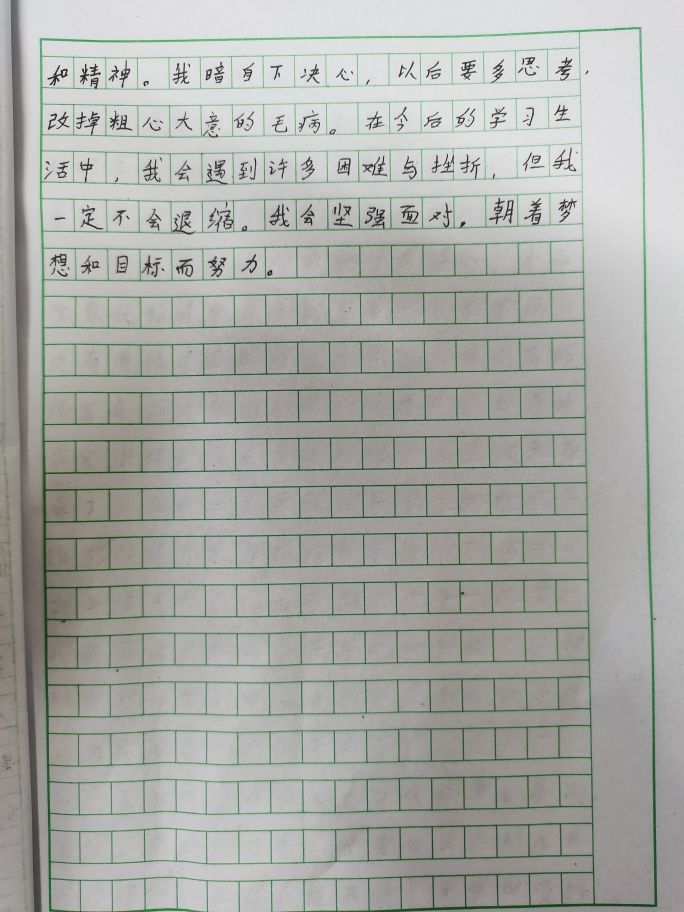 和精神。我暗自下决心，以后要多思考，
改掉粗心大意的毛病。在今后的学习生
活中，我会遇到许多困难与挫折，但我
一定不会退缩。我会坚强面对，朝着梦
想和目标而努力。